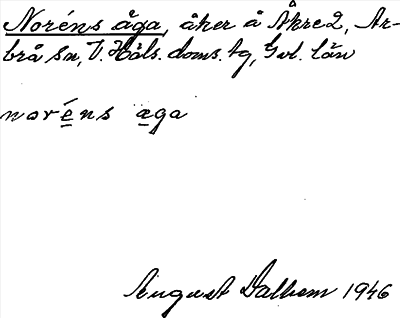 Noréns åga, åker å Åkre 2, Ar-
brå sn, V. Häls. doms. tg, Gvl. län
noréns æga
August Dalhem 1946